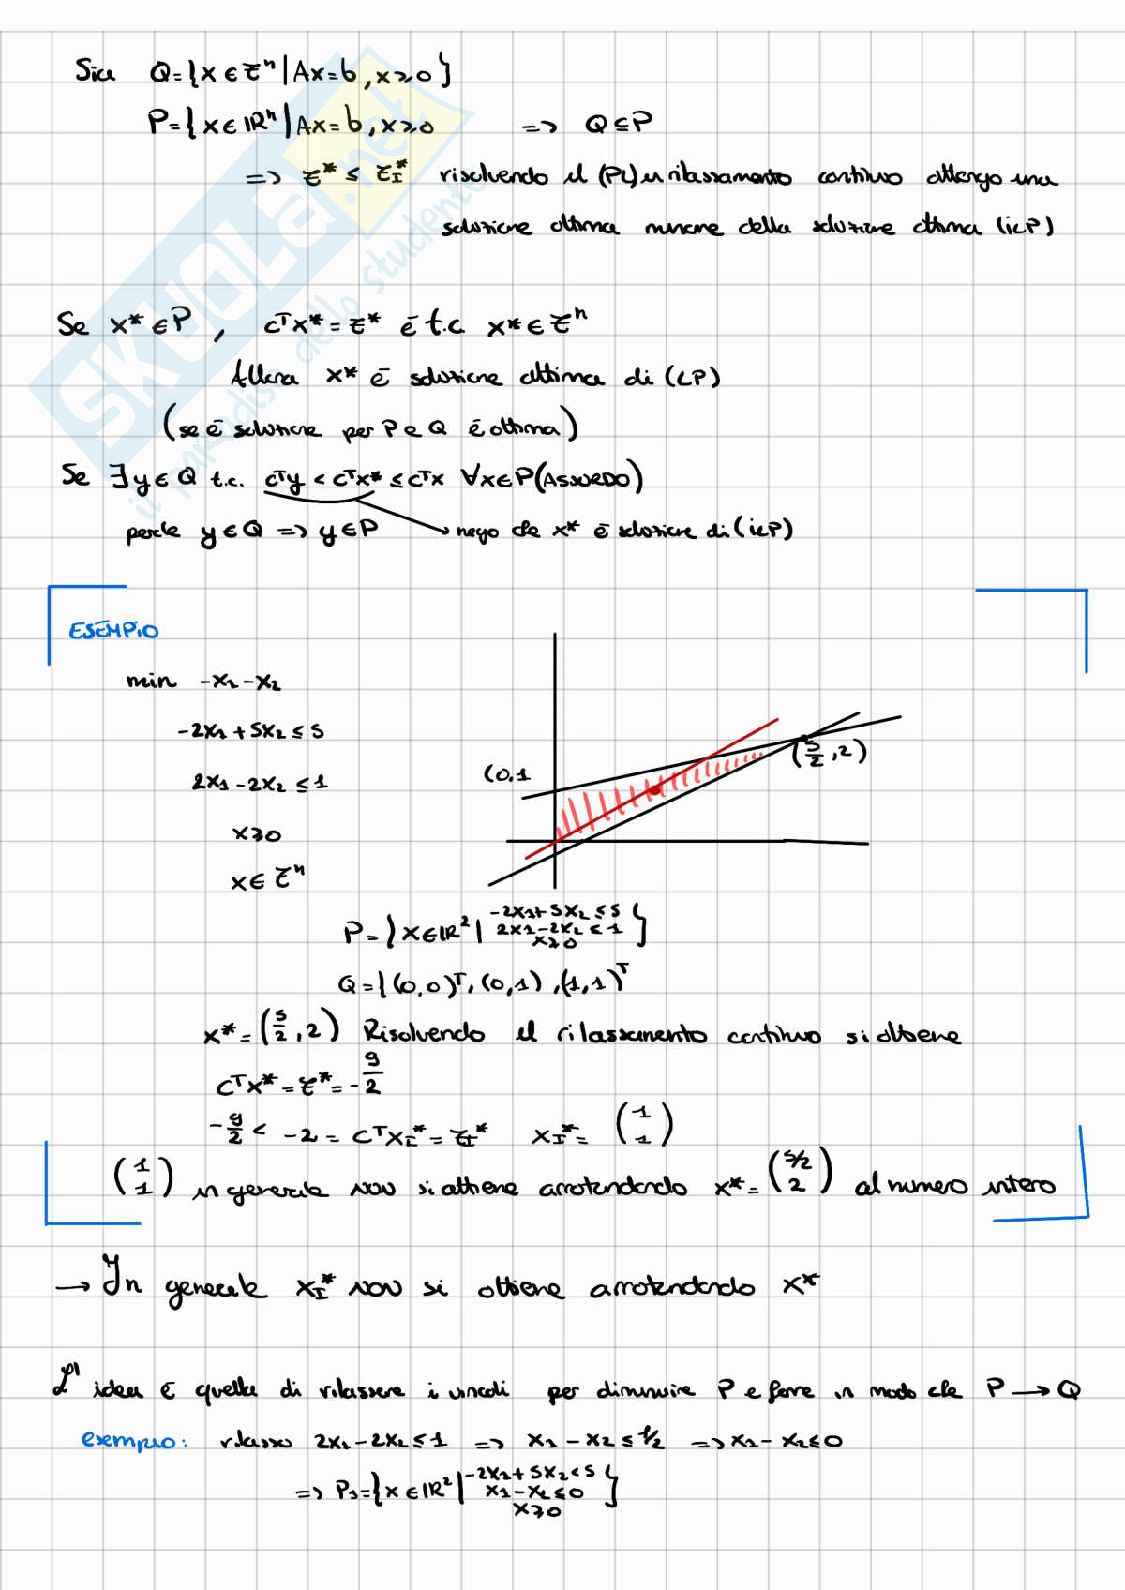 Sia Q={x ∈ Z^n | Ax=b, x≥0}
P={x ∈ IR^n | Ax=b, x≥0 => Q⊆P
=> z* ≤ z_I* risolvendo il (PL) in rilassamento continuo ottengo una
soluzione ottima minore della soluzione ottima (iLP)
Se x* ∈ P, c^T x* = z* è t.c. x* ∈ Z^n
Allora x* è soluzione ottima di (LP)
(se è soluzione per P e Q è ottima)
Se ∃ y ∈ Q t.c. c^T y < c^T x* ≤ c^T x ∀x∈P (ASSURDO)
perche y ∈ Q => y ∈ P → nego che x* è soluzione di (iLP)
ESEMPIO
min -x1 -x2
-2x1 + 5x2 ≤ 5
2x1 - 2x2 ≤ 1
x≥0
x ∈ Z^n
(0,1
(5/2, 2)
P = {x ∈ IR^2 | -2x1 + 5x2 ≤ 5
2x1 - 2x2 ≤ 1
x≥0 }
Q = { (0,0)^T, (0,1), (1,1)^T
x* = (5/2, 2) Risolvendo il rilassamento continuo si ottiene
c^T x* = z* = -9/2
-9/2 < -2 = c^T x_I* = z_I* x_I* = (1 1)
(1 1) in generale NON si ottiene arrotondando x* = (5/2 2) al numero intero
→ In generale x_I* NON si ottiene arrotondando x*
L' idea è quella di rilassare i vincoli per diminuire P e fare in modo che P → Q
esempio: rilasso 2x1 - 2x2 ≤ 1 => x1 - x2 ≤ 1/2 => x1 - x2 ≤ 0
=> P1 = {x ∈ IR^2 | -2x1 + 5x2 ≤ 5
x1 - x2 ≤ 0
x≥0 }
SKUOLA.net
il paradiso dello studente